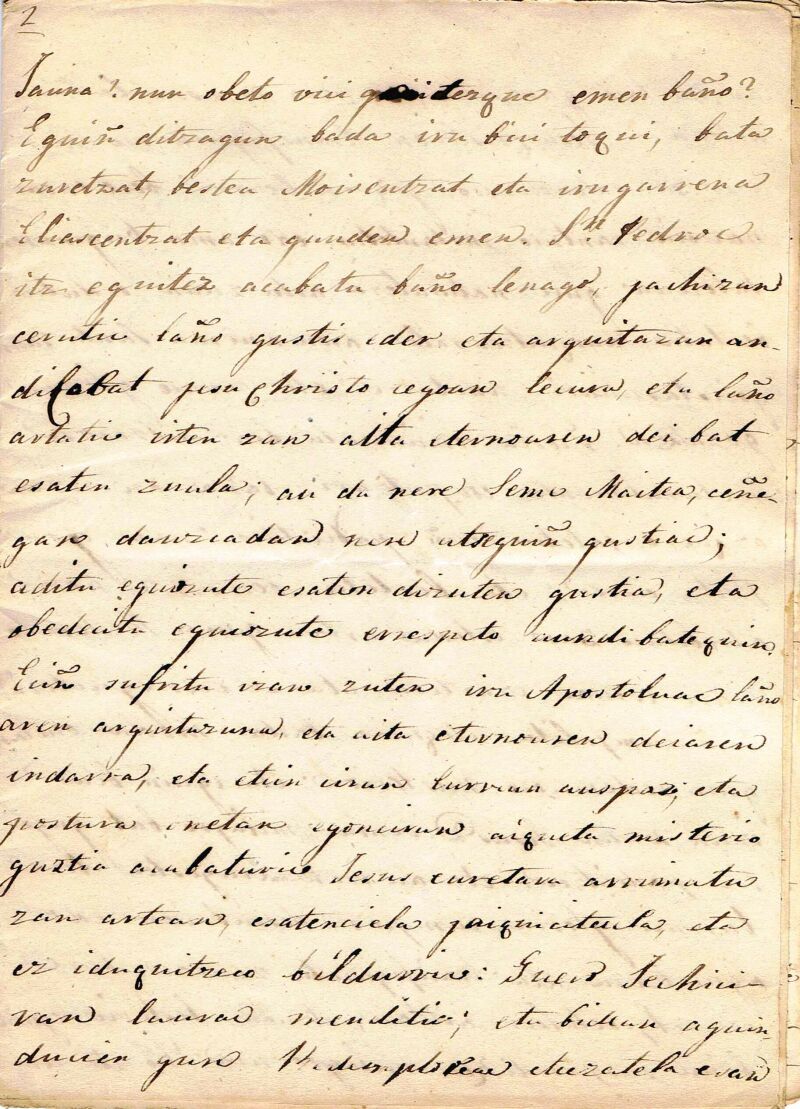 2
Jauna! nun obeto vici guiñezque emen baño?
Eguiñ ditzagun bada iru bici toqui, bata
zuretzat, bestea Moisentzat eta irugarrena
Eliascentzat eta gauden emen. Sn Pedroc
itz eguitez acabatu baño lenago, jachizan
cerutic laño gustis eder eta arguitazun an-
dicobat jesu Christo cegoan lecura, eta laño
artatic irten zan aita eternoaren dei bat
esaten zuala; au da nere Seme Maitea, ceñe-
gan dauzcadan nere atseguiñ gustiac;
aditu eguiozute esaten dizuten gustia, eta
obedecitu eguiozute errespeto aundi batequin.
Eciñ sufritu izan zuten iru Apostoluac laño
aren arguitazuna, eta aita eternoaren deiaren
indarra, eta etcin ciran lurrean auspaz, eta
postura onetan egonciran aiqueta misterio
guztia acabaturic Jesus euretara arrimatu
zan artean, esatenciela jaiquiciteula, eta
ez iduquitzeco bildurric: Guero Jechici-
ran laurac menditic; eta bidean aguin-
ducien gure Redemptoreac etzezatela esan